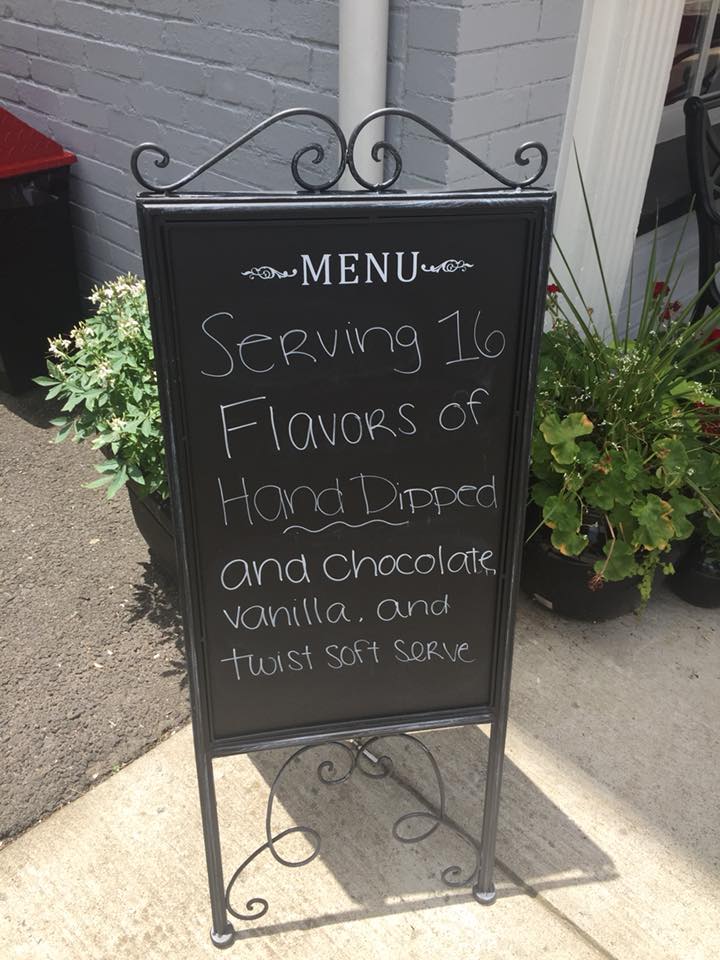 MENU
Serving 16
Flavors of
Hand Dipped
and chocolate,
vanilla, and
twist soft serve